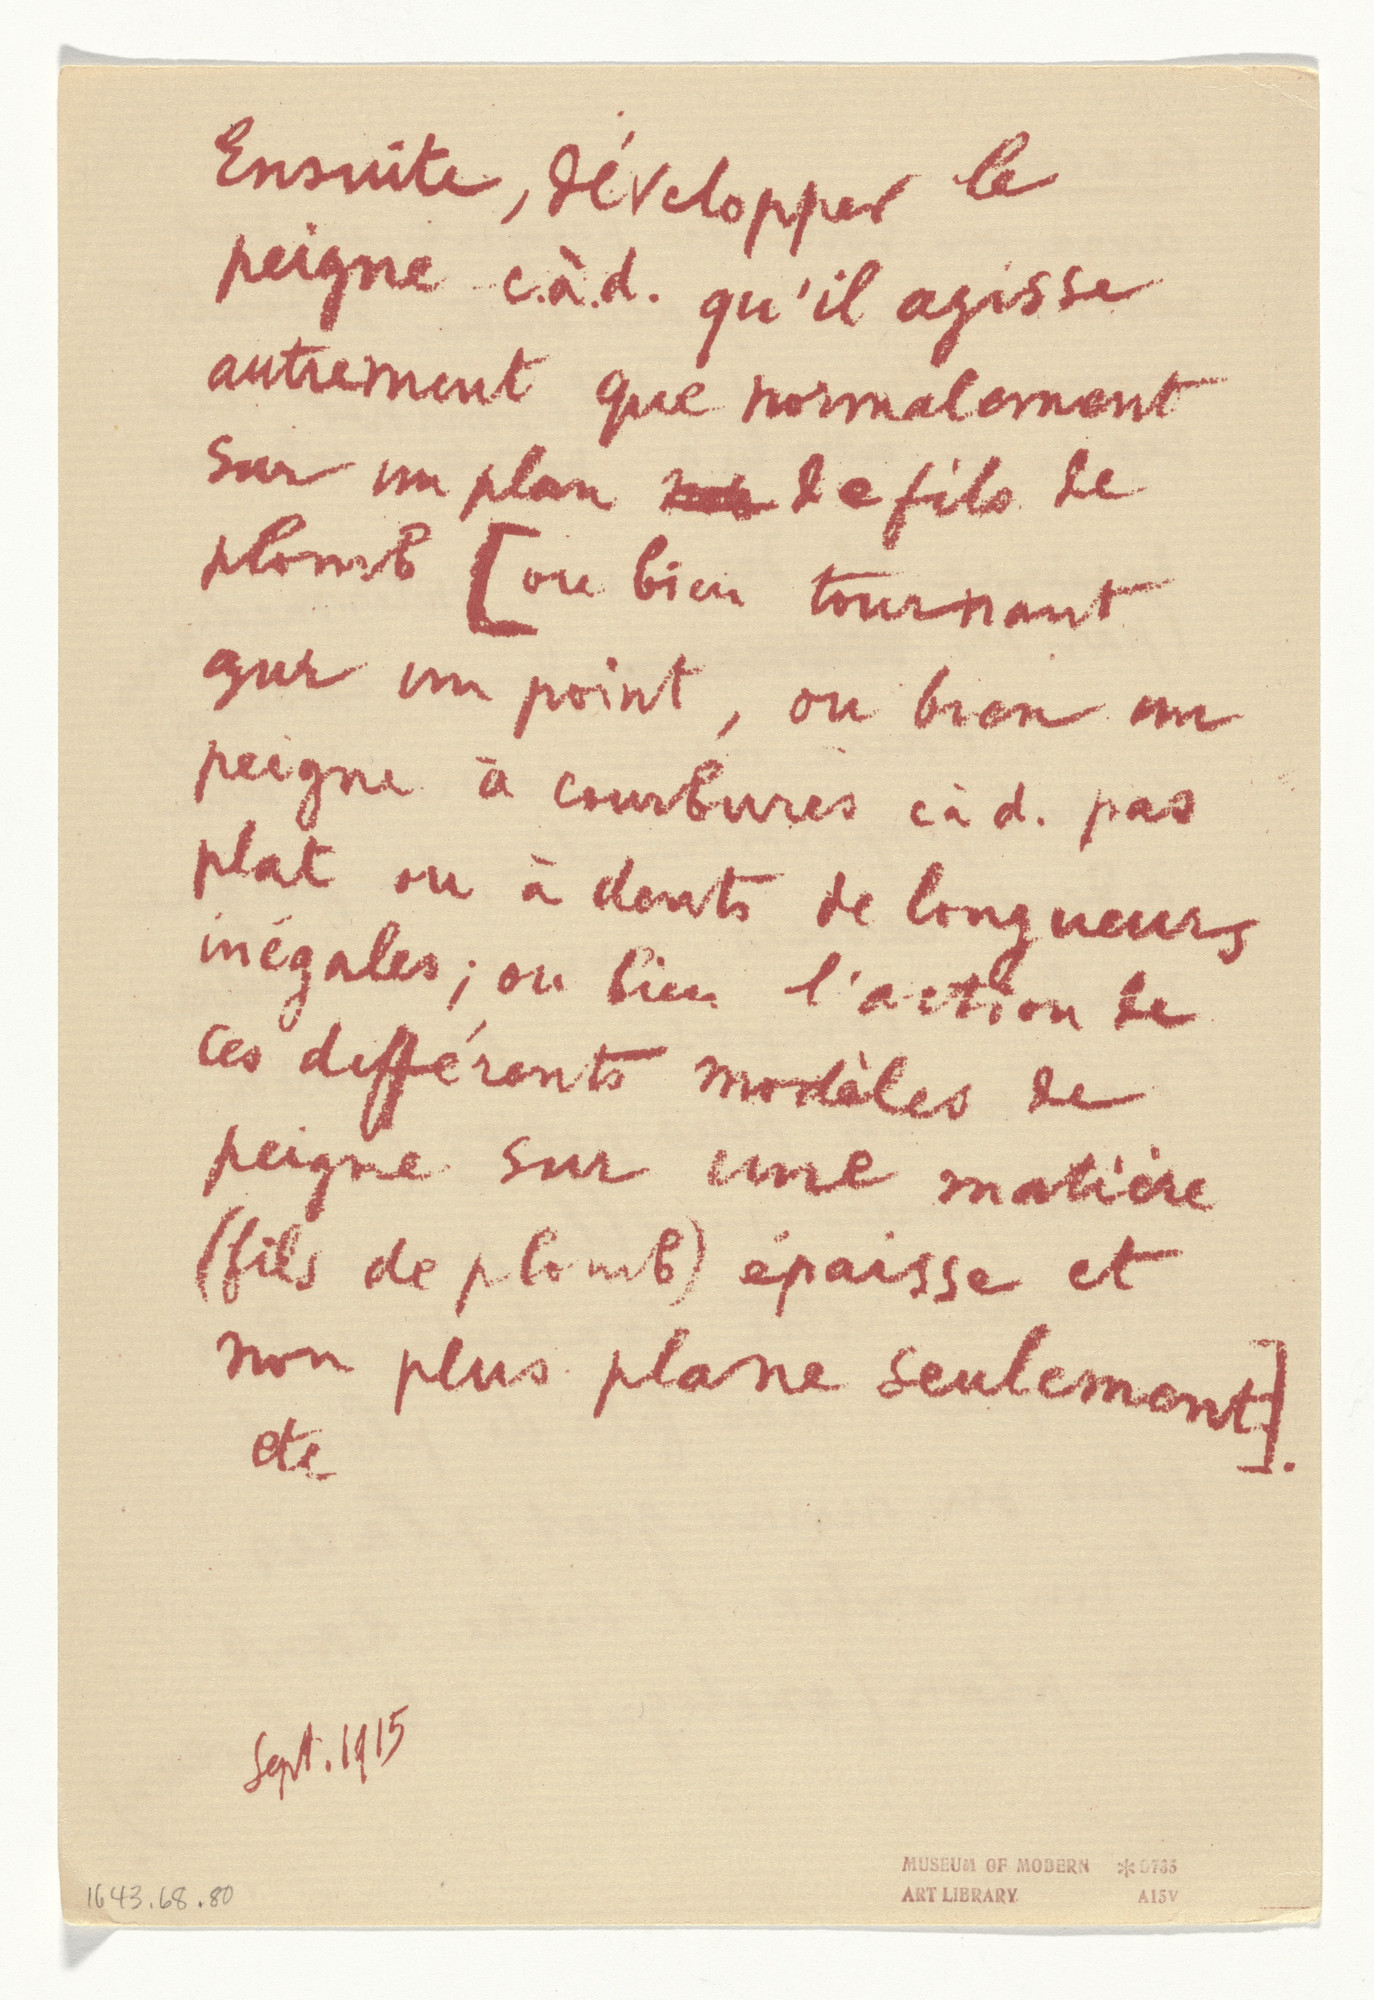 Ensuite, développer le
peigne c.à.d. qu'il agisse
autrement que normalement
sur un plan de fils de
plomb [ou bien tournant
sur un point, ou bien un
peigne à courbures càd. pas
plat ou à dents de longueurs
inégales; ou bien l'action de
ces différents modèles de
peigne sur une matière
(fils de plomb) épaisse et
non plus plane seulement].
etc
Sept. 1915
1643.68.80
MUSEUM OF MODERN
ART LIBRARY
A15V